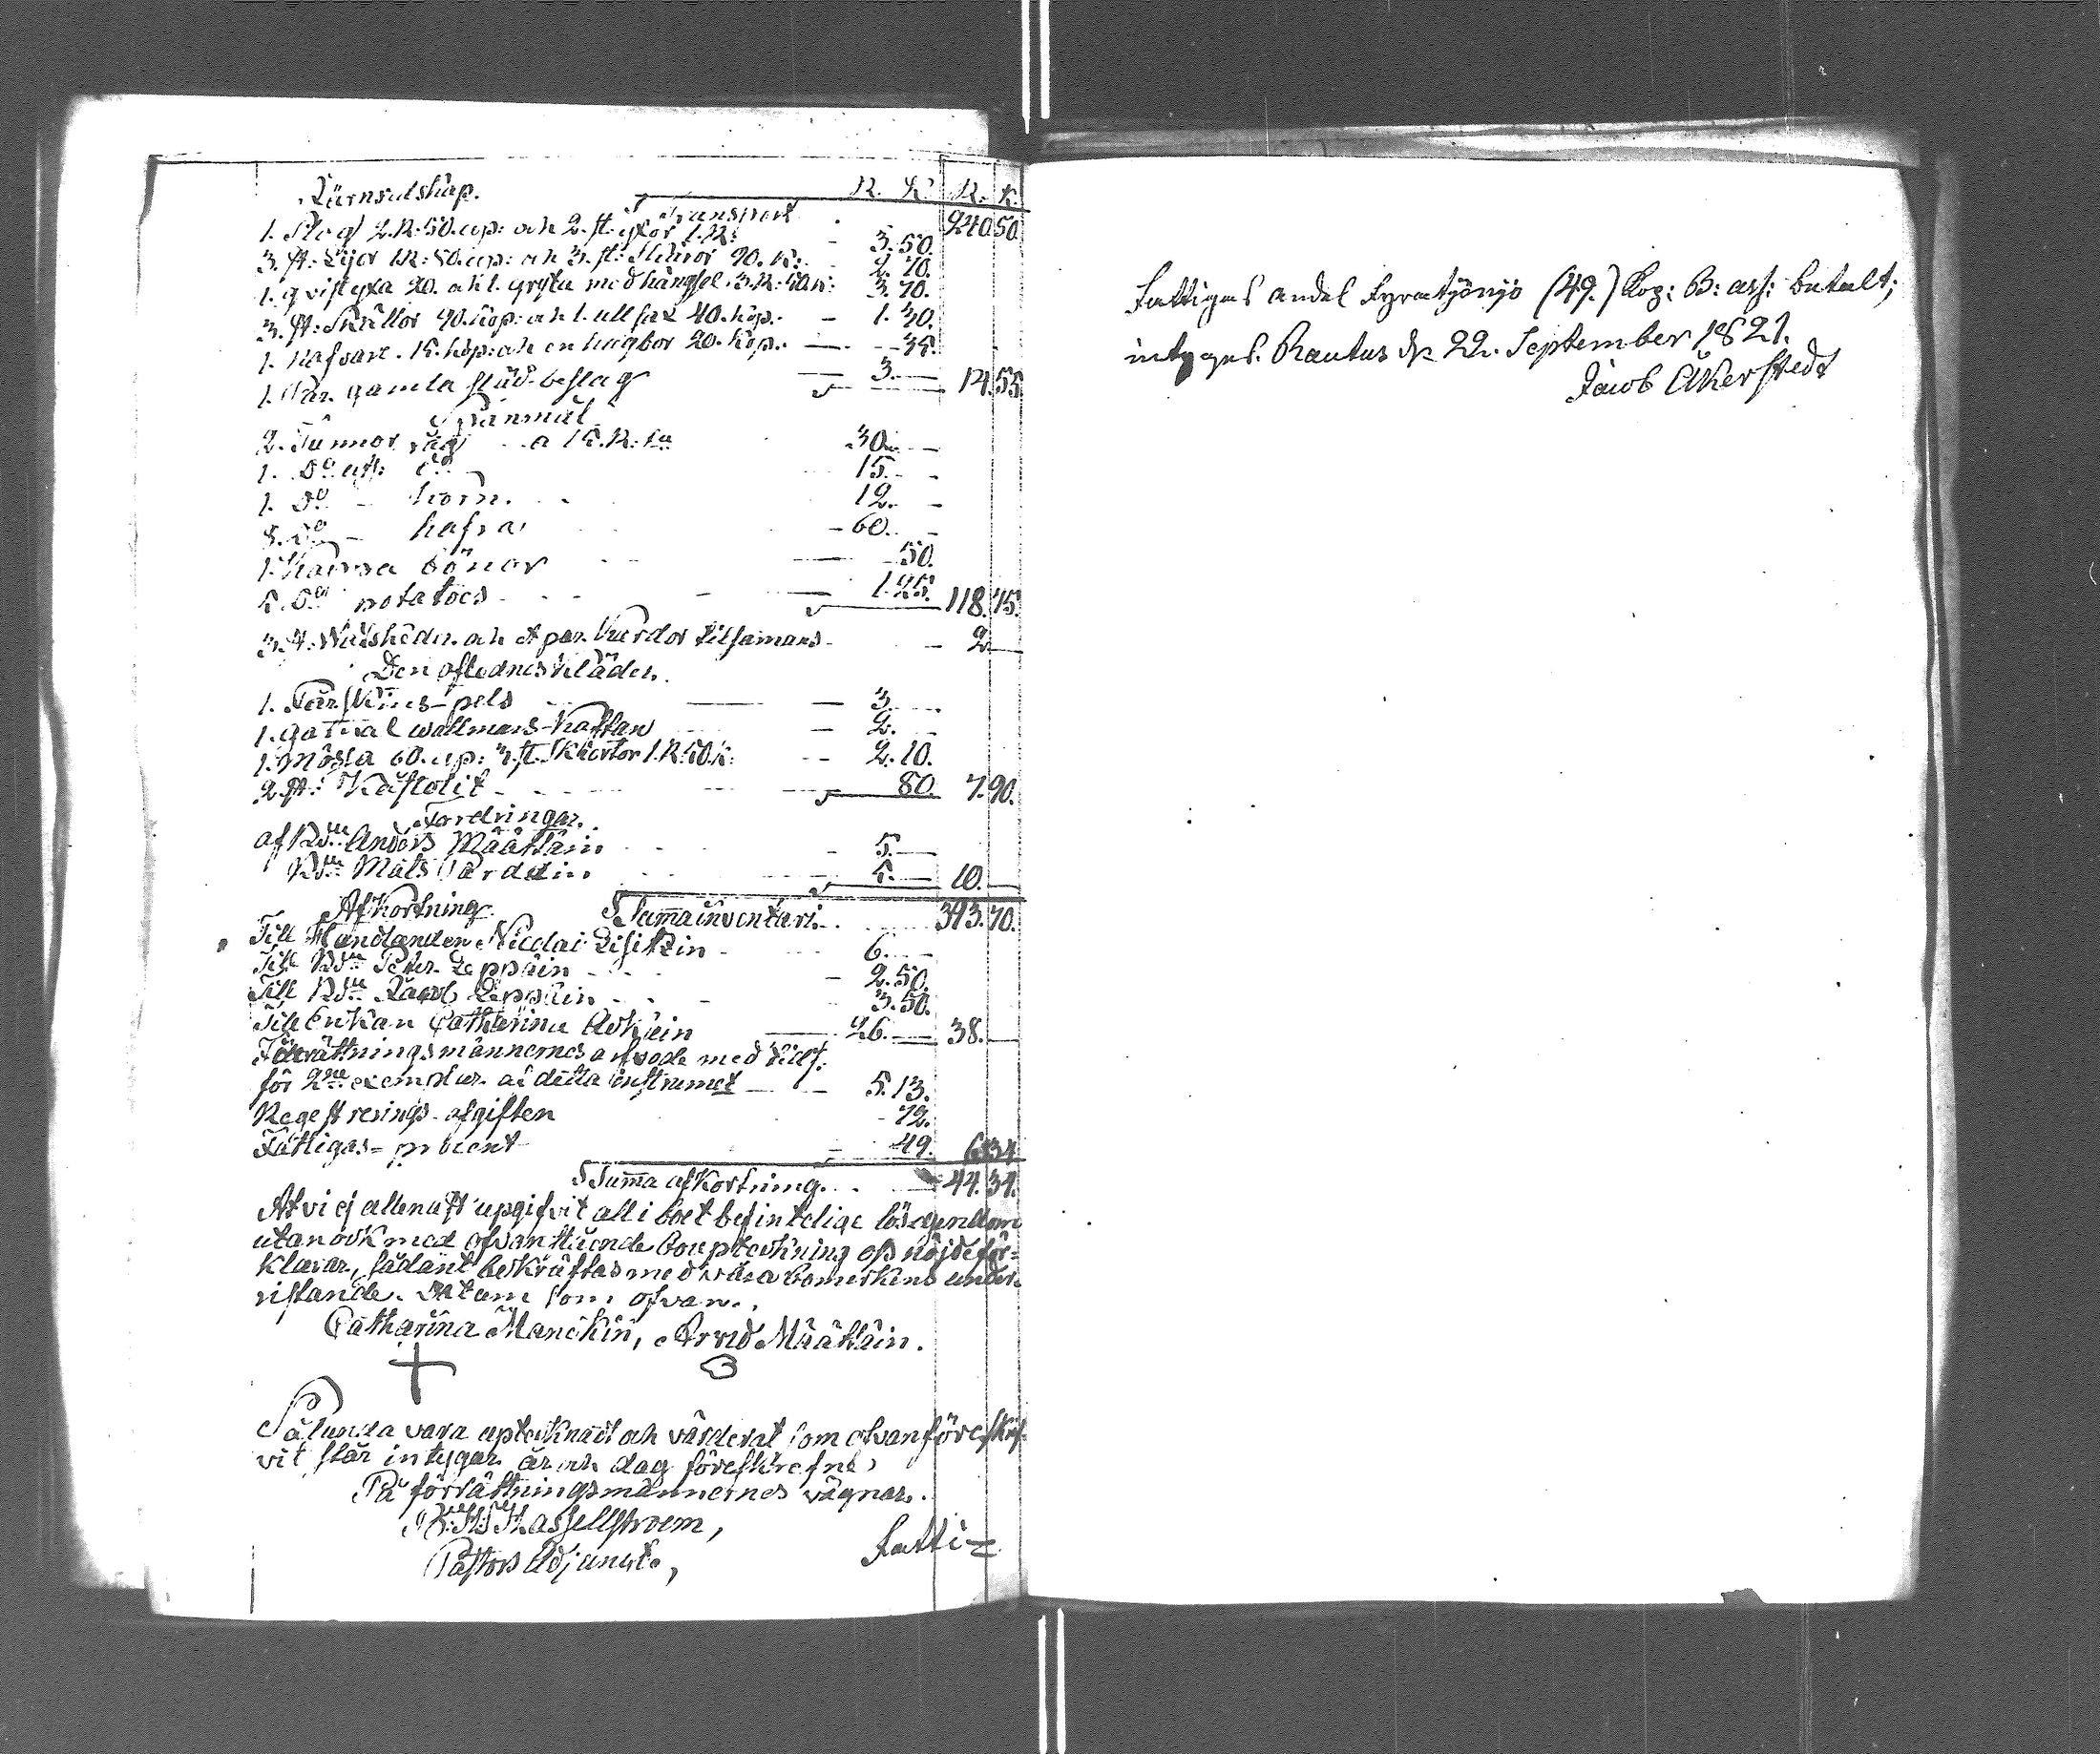 Järnredskap. R. K. R. K.
Transport 240 50
1. Plog 2.R: 50.cop: och 2. st: yxor 1.R: 3. 50.
3. st: Lijor 1R: 80.cop: och 3. st: Skäror 90. K: 2. 70.
1. qvistyxa 20. och 1. gryta med hängsel 3.R: 50.K: 3. 70.
3. st: Skrällor 90. kop: och 1. ullsax 40. kop: 1. 30.
1. Nafvare 15. kop: och en hugbor 20. kop: 35.
1. Par gamla släd-beslag 3. 14. 55.
Spanmål
2. Tunnor råg a 15. R: 30.
1. Do 15.
1. Do korn. 12.
8. Do hafra 60.
1. Kappa bönor 50.
5. Do potatoes 1. 25. 118. 75.
3. st: och et par kardor tilsamans 2.
Den aflednes kläder.
1. Fårskins-pels 3.
1. gamal wallmans-kaftan 2.
1. mössa 60. cop: 3. st. Skiortor 1.R: 50.K: 2. 10.
2. st: 80. 7. 90.
Fordringar.
af Bdn Anders Määttäin 5.
Bdn Mats Pärdäin 5. 10.
Afkortning. Summa inventari 393. 70.
Till Handlanden Nicolai Lisitzin 6.
Till Bdn Peter Leppäin 2. 50.
Till Bdn Jacob Leppäin 3. 50.
Till Enkan Catharina 26. 38.
Förrättningsmännernes arfvode med
för 2ne exemplar af detta instrument 5. 13.
Regestrerings-afgiften 72.
Fattigas-procent 49. 6 34
Summa afkortning 44. 34.
At vi ej allenast upgifvit all i boet befintelige lösegendom
utan ock med ofvanstående boupteckning oss nöjde för-
klarar, sådant bekräftas med våra bomerkens under-
ristande. Datum som ofvan.
Catharina Manckin, Arvid Määttäin.
Sålunda vara uptecknadt och värderat som ofvanföreskrif-
vit står intygar år och dag föreskrefne,
På förrättningsmännernes vägnar.
Hassellstroem,
Pastors Adjunct.
Fatti=
Fattigas andel Fyratijonijo (49.) Kop: B: ass: betalt;
intygas. Rautus d. 22. September 1821.
Jacob Åkerstedt